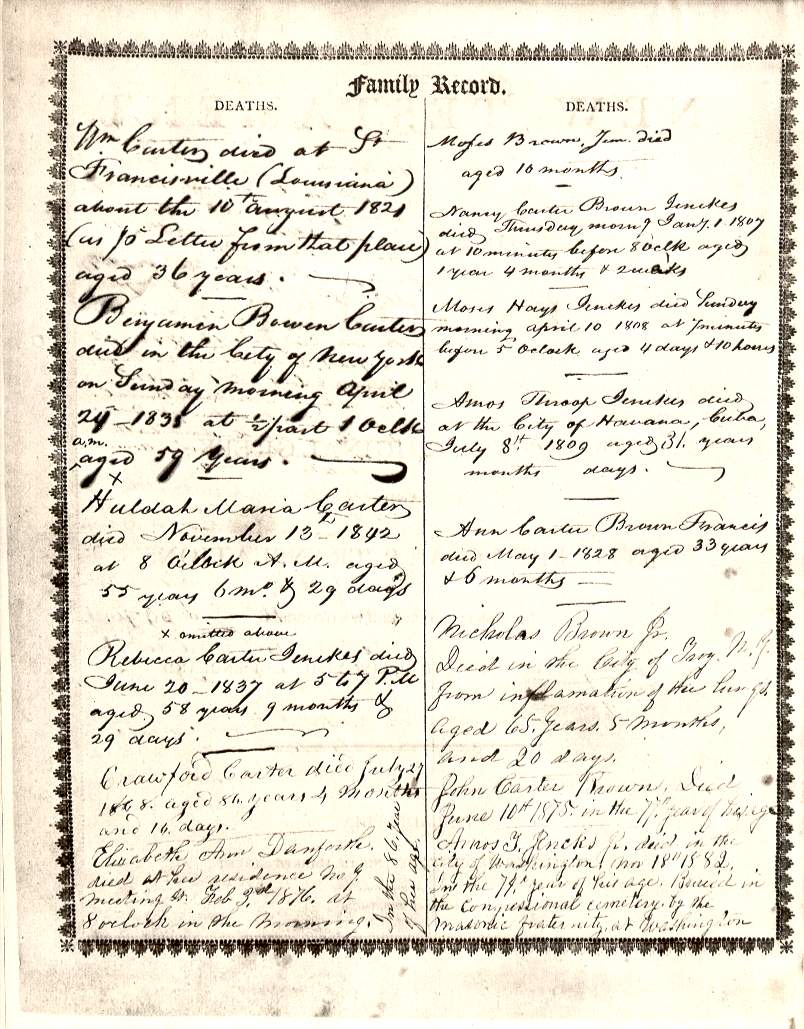 Family Record.
DEATHS.
Wm Carter died at St
Francisville (Louisiana)
about the 10th august 1821
(as pr Letter from that place)
aged 36 years.
Benjamin Bowen Carter
died in the City of New York
on Sunday morning April
24 - 1831 at ½ past 1 Oclk
a.m.
aged 59 Years.
x
Huldah Maria Carter
died November 13th - 1842
at 8 O'Clock A.M. aged
55 years 6 mo & 29 days
x omitted above
Rebecca Carter Jenckes died
June 20 - 1837 at 5 to 7 P.M
aged 58 years 9 months &
29 days.
Crawford Carter died July 27
1868. aged 84 years 4 months
and 16 days.
Elizabeth Ann Danforth.
died at her residence No 9
meeting St. Feb 3rd 1876. at
8 oclock in the morning.
In the 86 year
of her age.
DEATHS.
Moses Brown, Jun. died
aged 10 months.
Nancy Carter Brown Jenckes
died Thursday morng Jany. 1 - 1807
at 10 minutes before 8 Oclk aged
1 year 4 months & 2 weeks
Moses Hays Jenckes died Sunday
morning april 10 1808 at 7 minutes
before 5 Oclock aged 4 days & 10 hours
Amos Throop Jenckes died
at the City of Havana, Cuba,
July 8th 1809 aged 31. years
months days.
Ann Carter Brown Francis
died May 1 - 1828 aged 33 years
& 6 months
Nicholas Brown Jr.
Died in the City of Troy. N.Y.
from inflamation of the lungs.
aged 65. Years. 5 months,
and 20 days.
John Carter Brown. Died
June 10th 1875. in the year of his age
Amos T. Jencks Jr. died in the
City of Washington (Nov 18th 1882.
In the year of his age. Buried in
the Congressional cemetery. by the
Masonic fraternity, at Washington